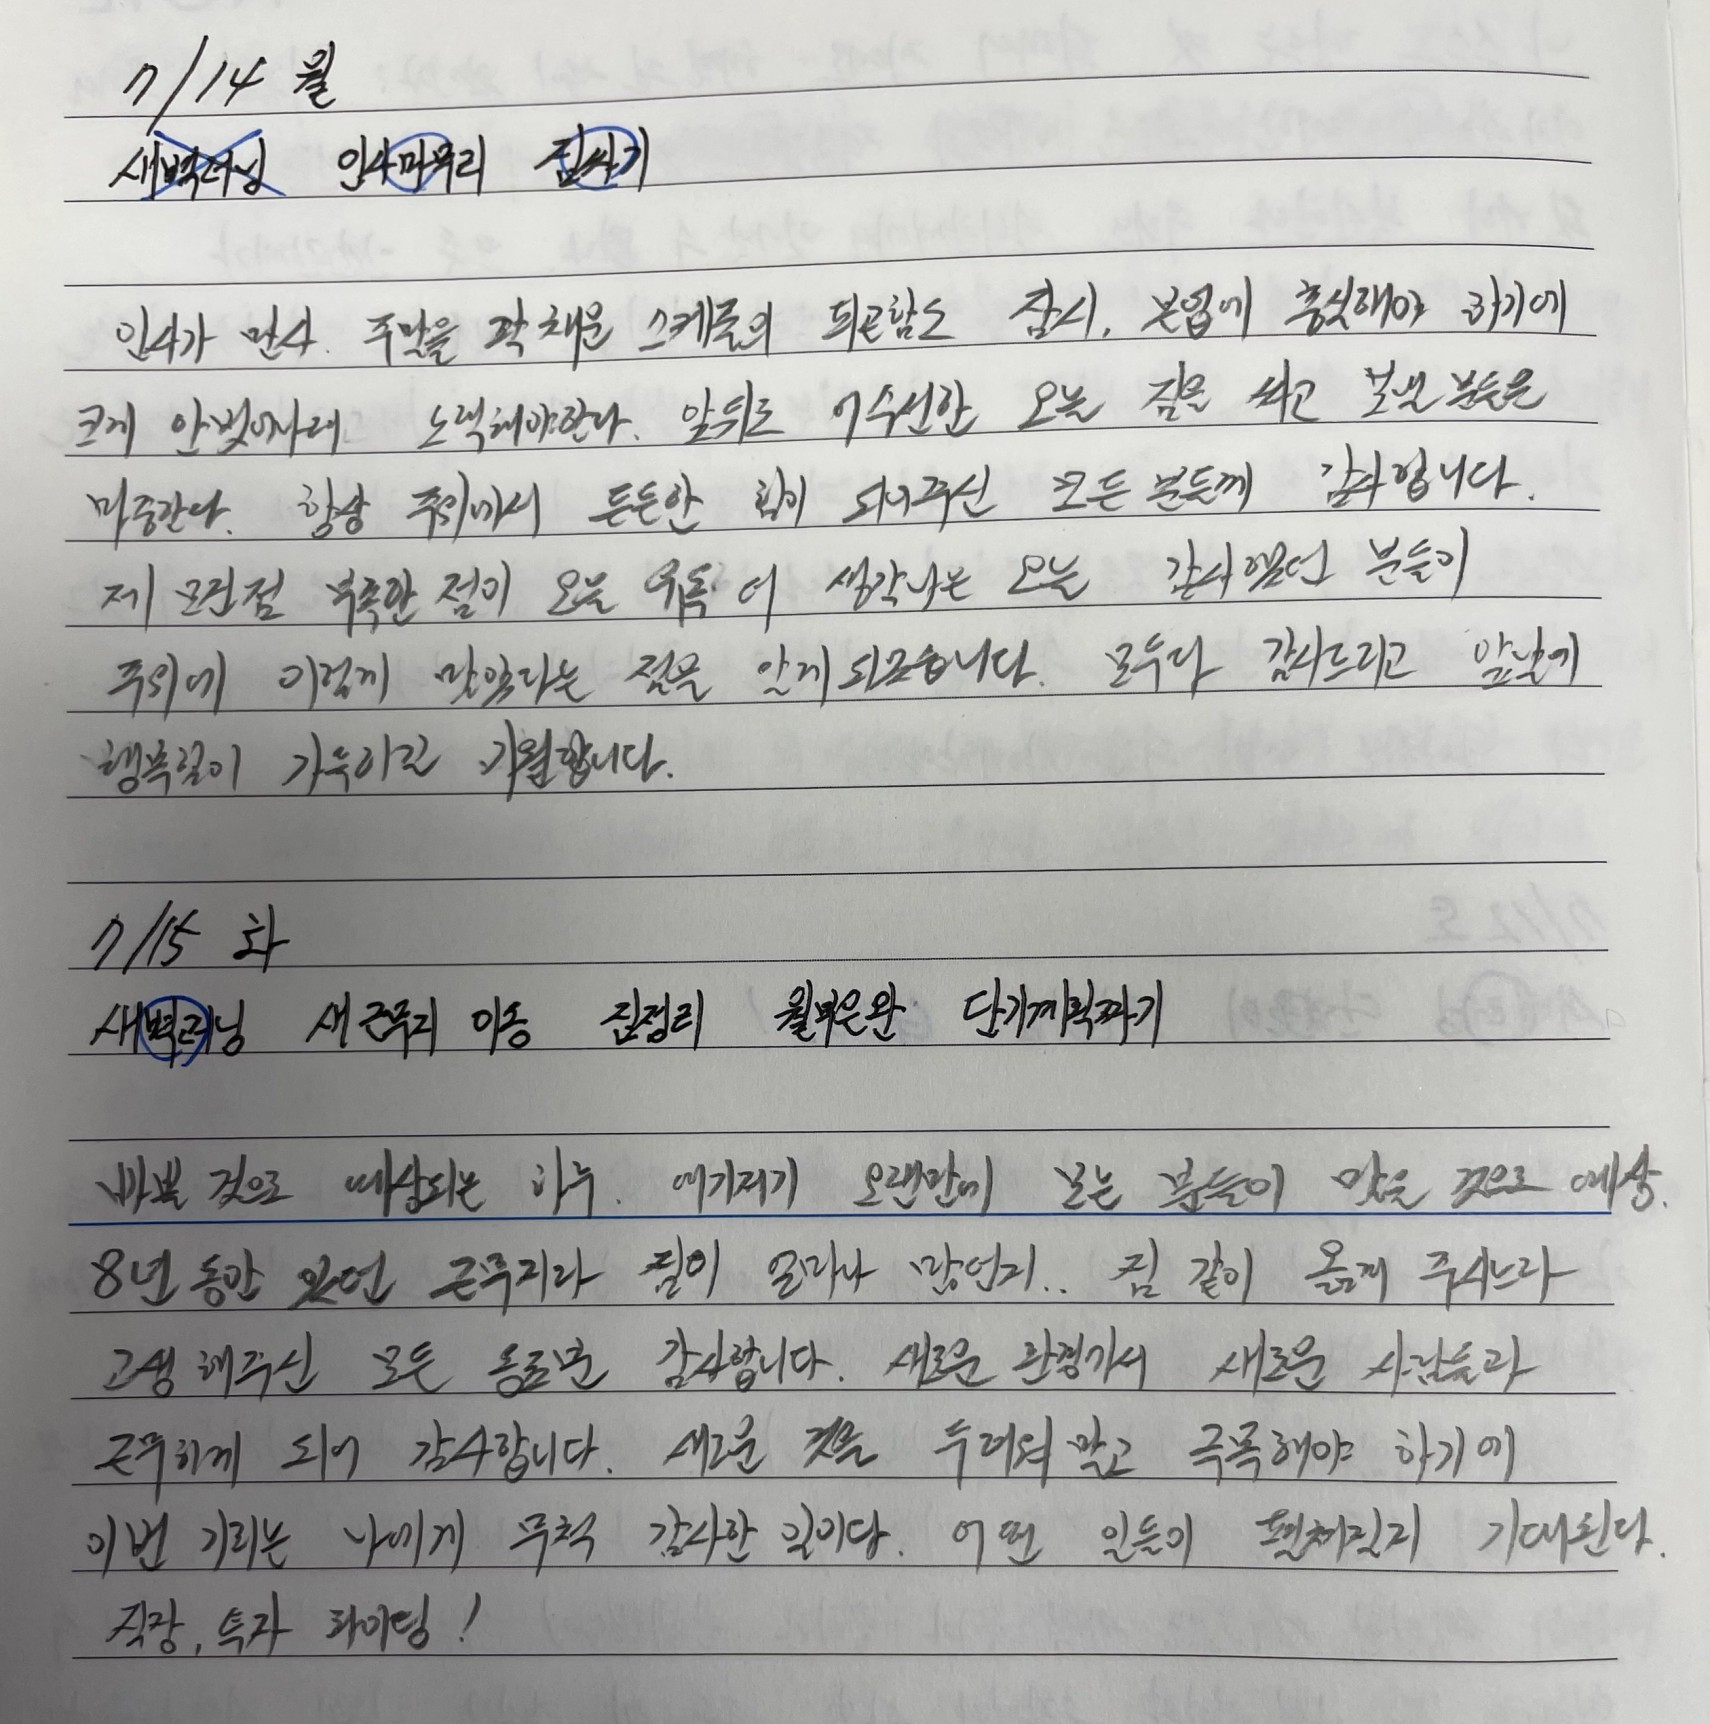 7/14 월
새벽러닝 인사마무리 짐싸기
인사가 만사. 주말을 꽉 채운 스케줄의 피곤함도 잠시, 본업에 충실해야 하기에
크게 안벗어나려 노력해야한다. 앞뒤로 어수선한 오늘 짐을 싸고 보낼 분들은
마중한다. 항상 주위에서 든든한 힘이 되어주신 모든 분들께 감사합니다.
제 모난점 부족한 점이 오늘 유독 더 생각나는 오늘 감사했던 분들이
주위에 이렇게 많았다는 점을 알게 되었습니다. 모두다 감사드리고 앞날에
행복함이 가득하길 기원합니다.
7/15 화
새벽러닝 새 근무지 이동 짐정리 월부은완 단기계획짜기
바쁠 것으로 예상되는 하루. 여기저기 오랜만에 보는 분들이 많을 것으로 예상.
8년 동안 있던 근무지라 짐이 얼마나 많던지.. 짐 같이 옮겨 주시느라
고생 해주신 모든 동료분 감사합니다. 새로운 환경가서 새로운 사람들과
근무하게 되어 감사합니다. 새로운 것을 두려워 말고 극복해야 하기에
이번 기회는 나에게 무척 감사한 일이다. 어떤 일들이 펼쳐질지 기대된다.
직장, 투자 화이팅!